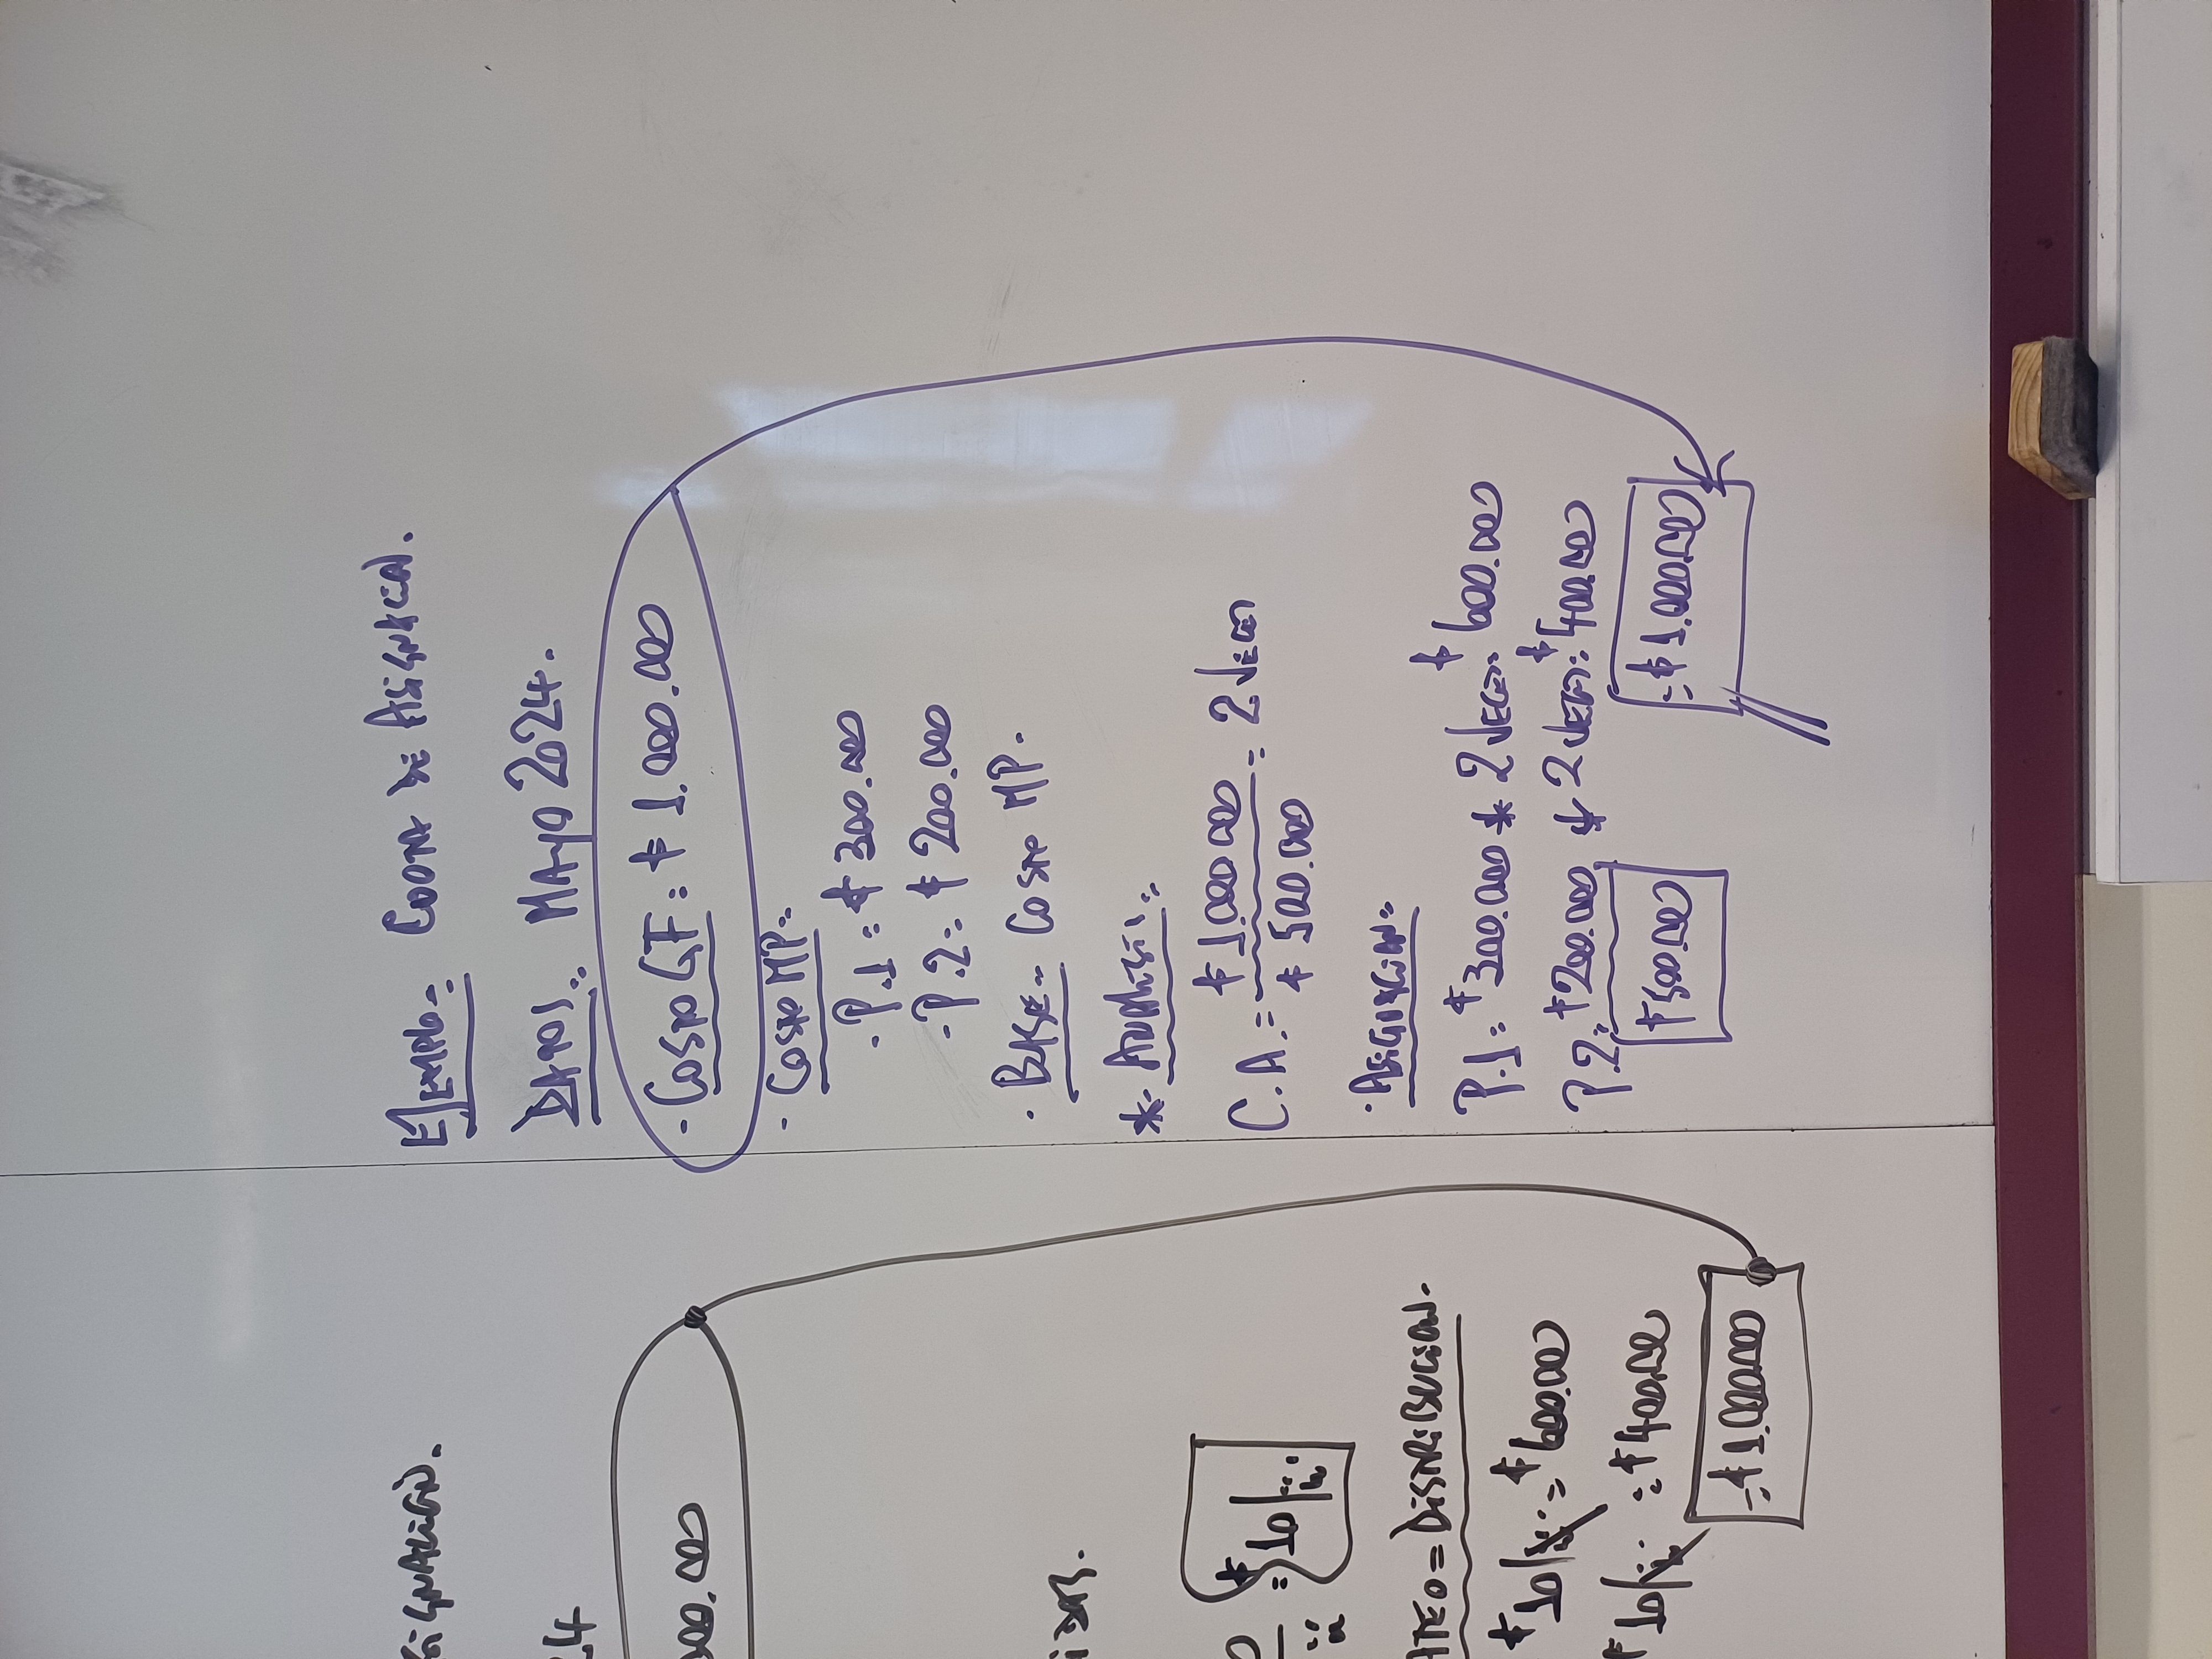 SIGNACIÓN.
24
000.000
IDAS.
0
= $10/ü
ü
ATEO = DISTRIBUCION.
$10/ü = $600.000
$10/ü = $400.000
= $1.000.000
EJEMPLO= CUOTA DE ASIGNACION.
DATOS: MAYO 2024.
- COSTO GF: $ 1.000.000
- COSTO MP:
- P.1: $ 300.000
- P.2: $ 200.000
· BASE= COSTO MP.
* ANALISIS:
C.A. = $ 1.000.000 / $ 500.000 = 2 VECES
· ASIGNACION:
P.1: $300.000 * 2 VECES: $600.000
P.2: $200.000 * 2 VECES: $400.000
$500.000 = $1.000.000